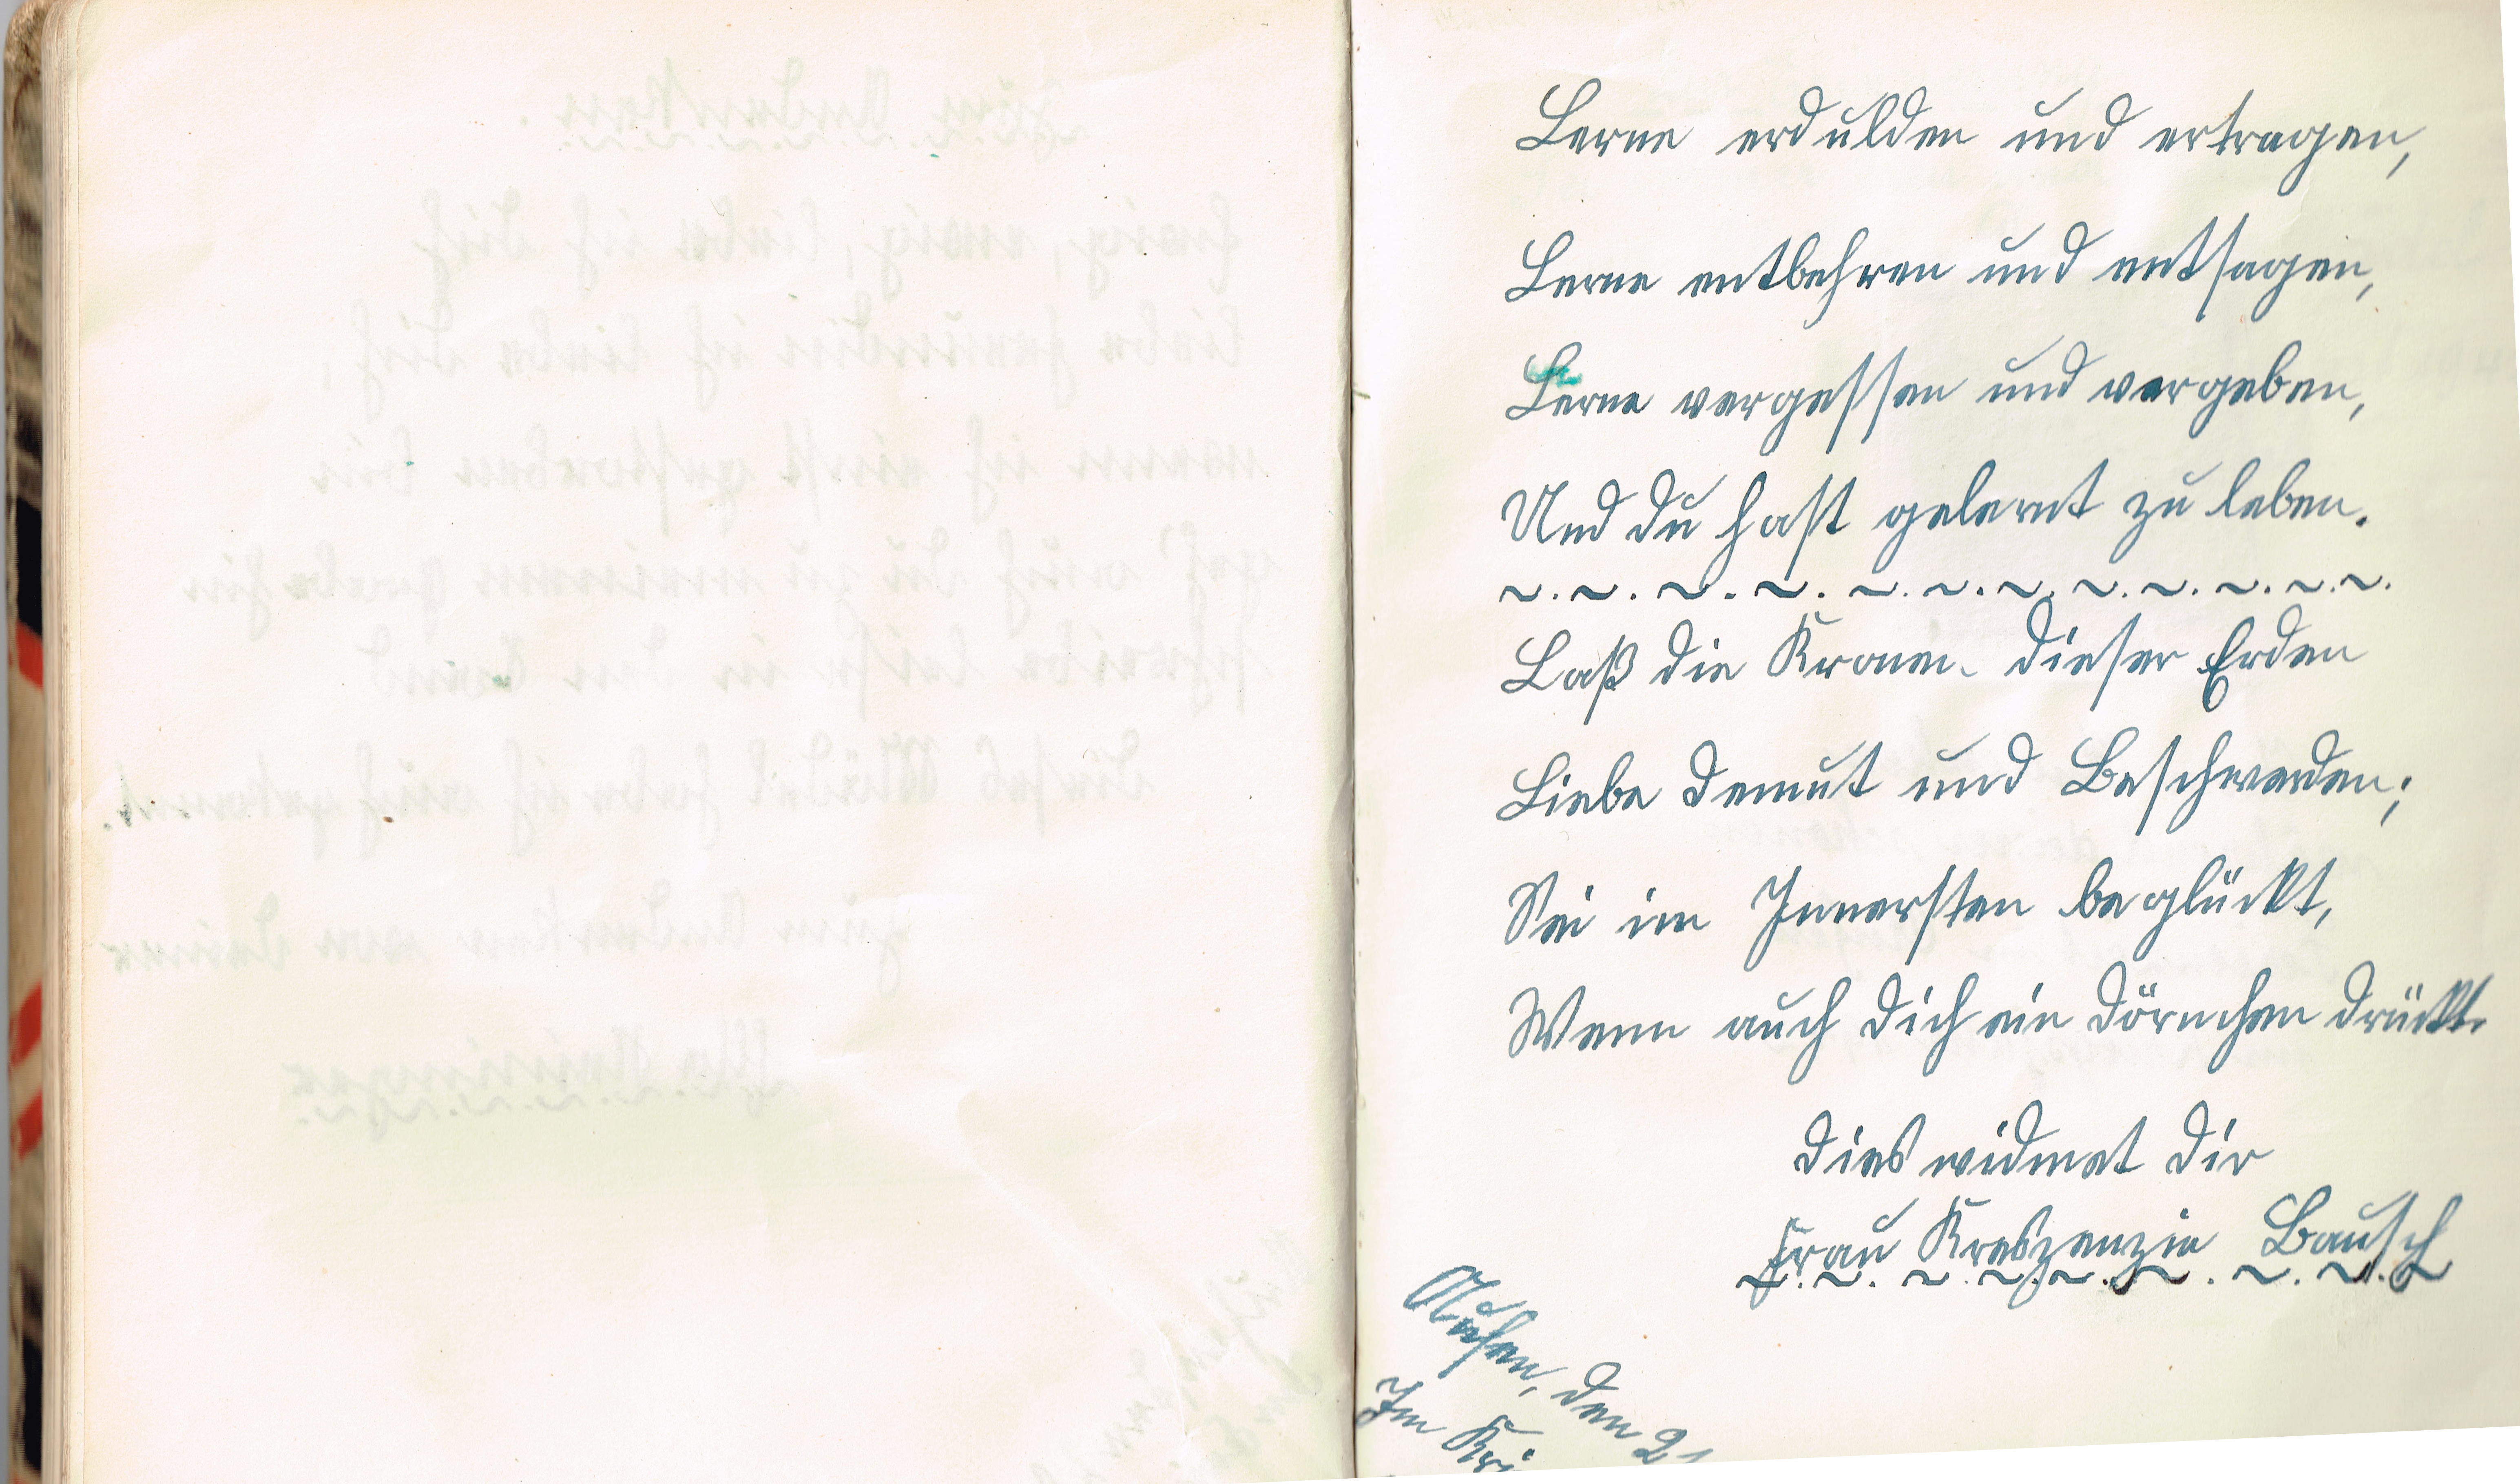 Lerne erdulden und ertragen,
Lerne entbehren und entsagen,
Lerne vergessen und vergeben,
Und du hast gelernt zu leben.
Laß die Kronen dieser Erden
Liebe Demut und Beschwerden;
Sei im Innersten beglückt,
Wenn auch dich ein Dörnchen drückt.
Dies widmet Dir
Frau Kreszenzia Bausch
den 21
Im Kri